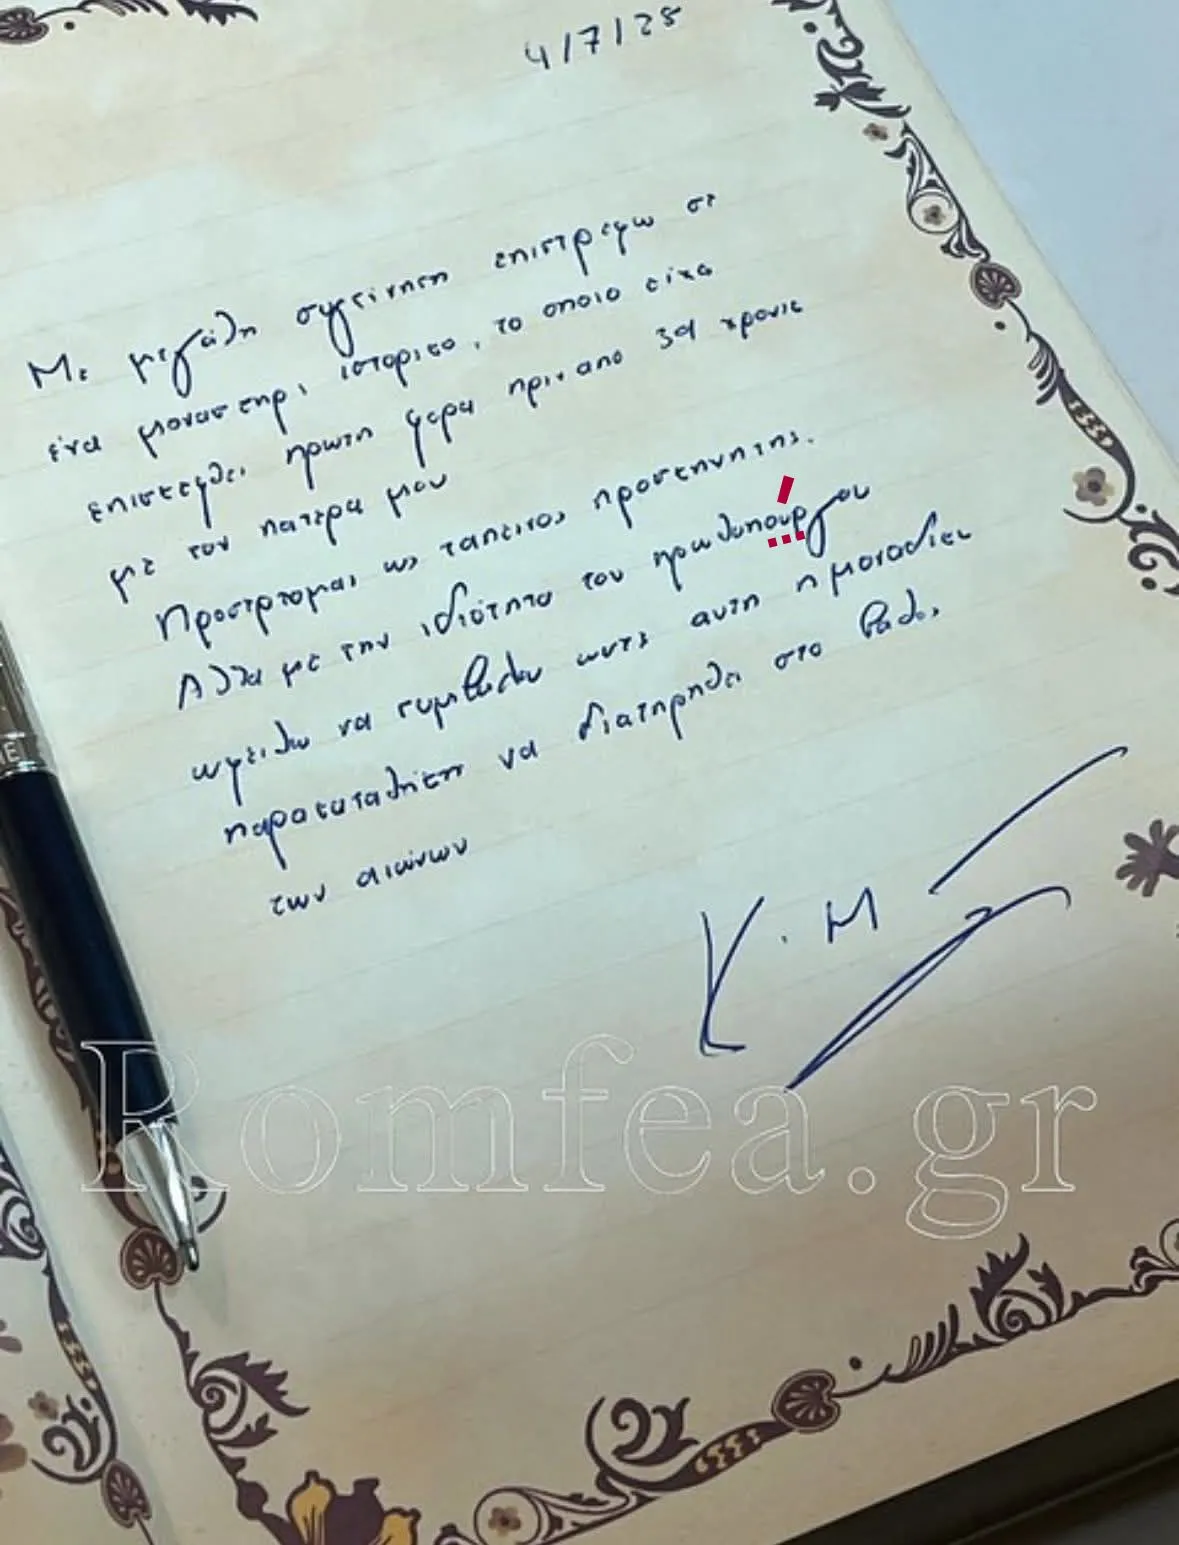 4/7/25
Με μεγάλη συγκίνηση επιστρέφω σε
ένα μοναστήρι ιστορικο, το οποιο είχα
επισκεφθει πρωτη φορα πριν απο 39 χρονια
με τον πατερα μου
Προσερχομαι ως ταπεινος προσκυνητης.
Αλλα με την ιδιότητα του πρωθυπούργου
οφειλω να συμβαλω ωστε αυτη η μοναδικη
παρακαταθήκη να διατηρηθει στο βαθος
των αιώνων
Κ. Μ
Romfea.gr